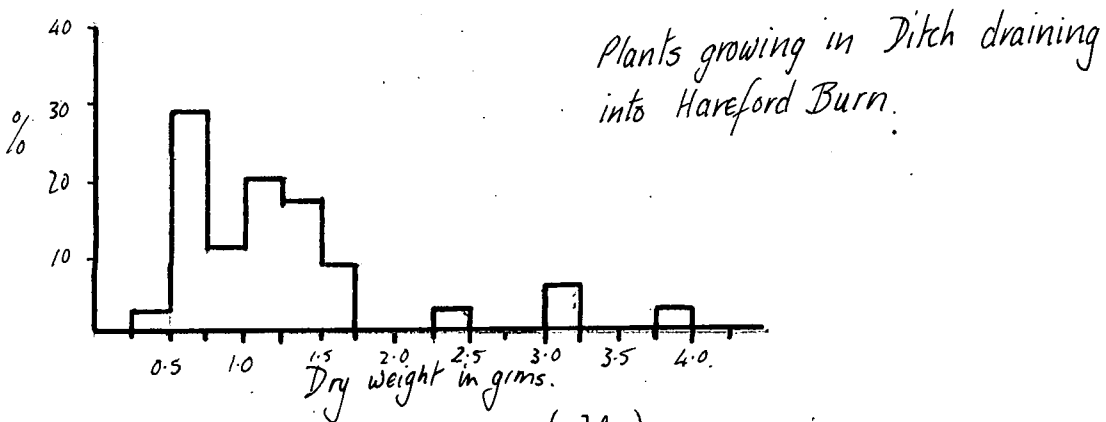 40
Plants growing in Ditch draining
into Hareford Burn.
%
30
20
10
0.5 1.0 1.5 2.0 2.5 3.0 3.5 4.0.
Dry weight in grms.